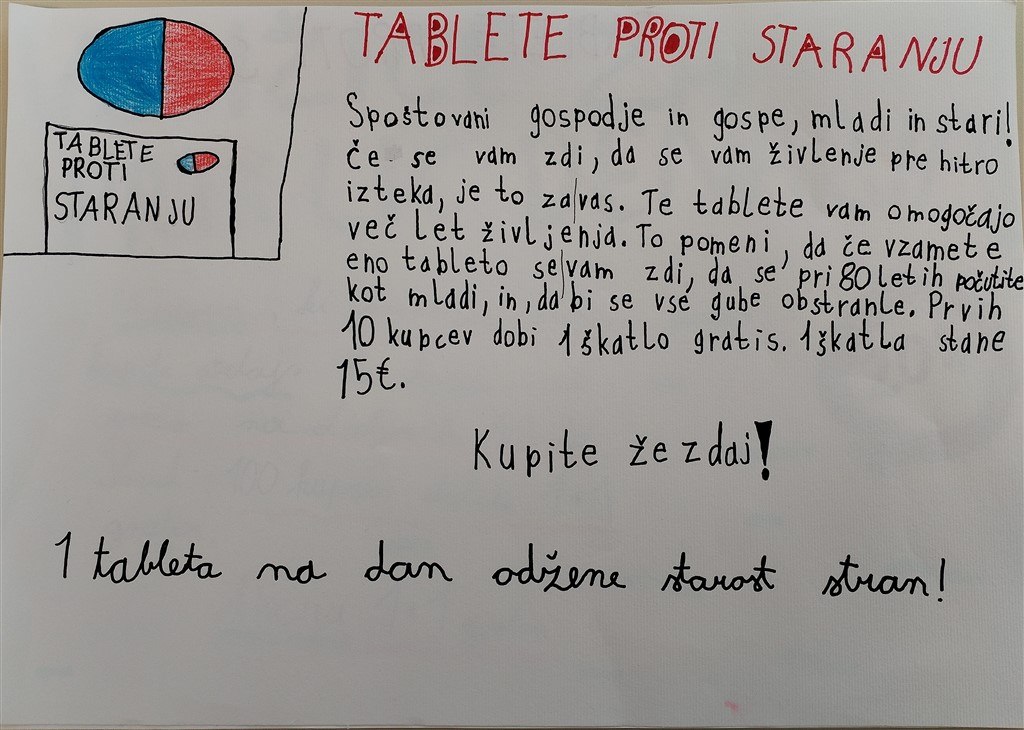 TABLETE PROTI STARANJU
TABLETE
PROTI
STARANJU
Spoštovani gospodje in gospe, mladi in stari!
Če se vam zdi, da se vam živlenje pre hitro
izteka, je to za vas. Te tablete vam omogočajo
več let življenja. To pomeni, da če vzamete
eno tableto se vam zdi, da se pri 80 letih počutite
kot mladi, in, da bi se vse gube obstranle. Prvih
10 kupcev dobi 1 škatlo gratis. 1 škatla stane
15€.
Kupite že zdaj!
1 tableta na dan odžene starost stran!